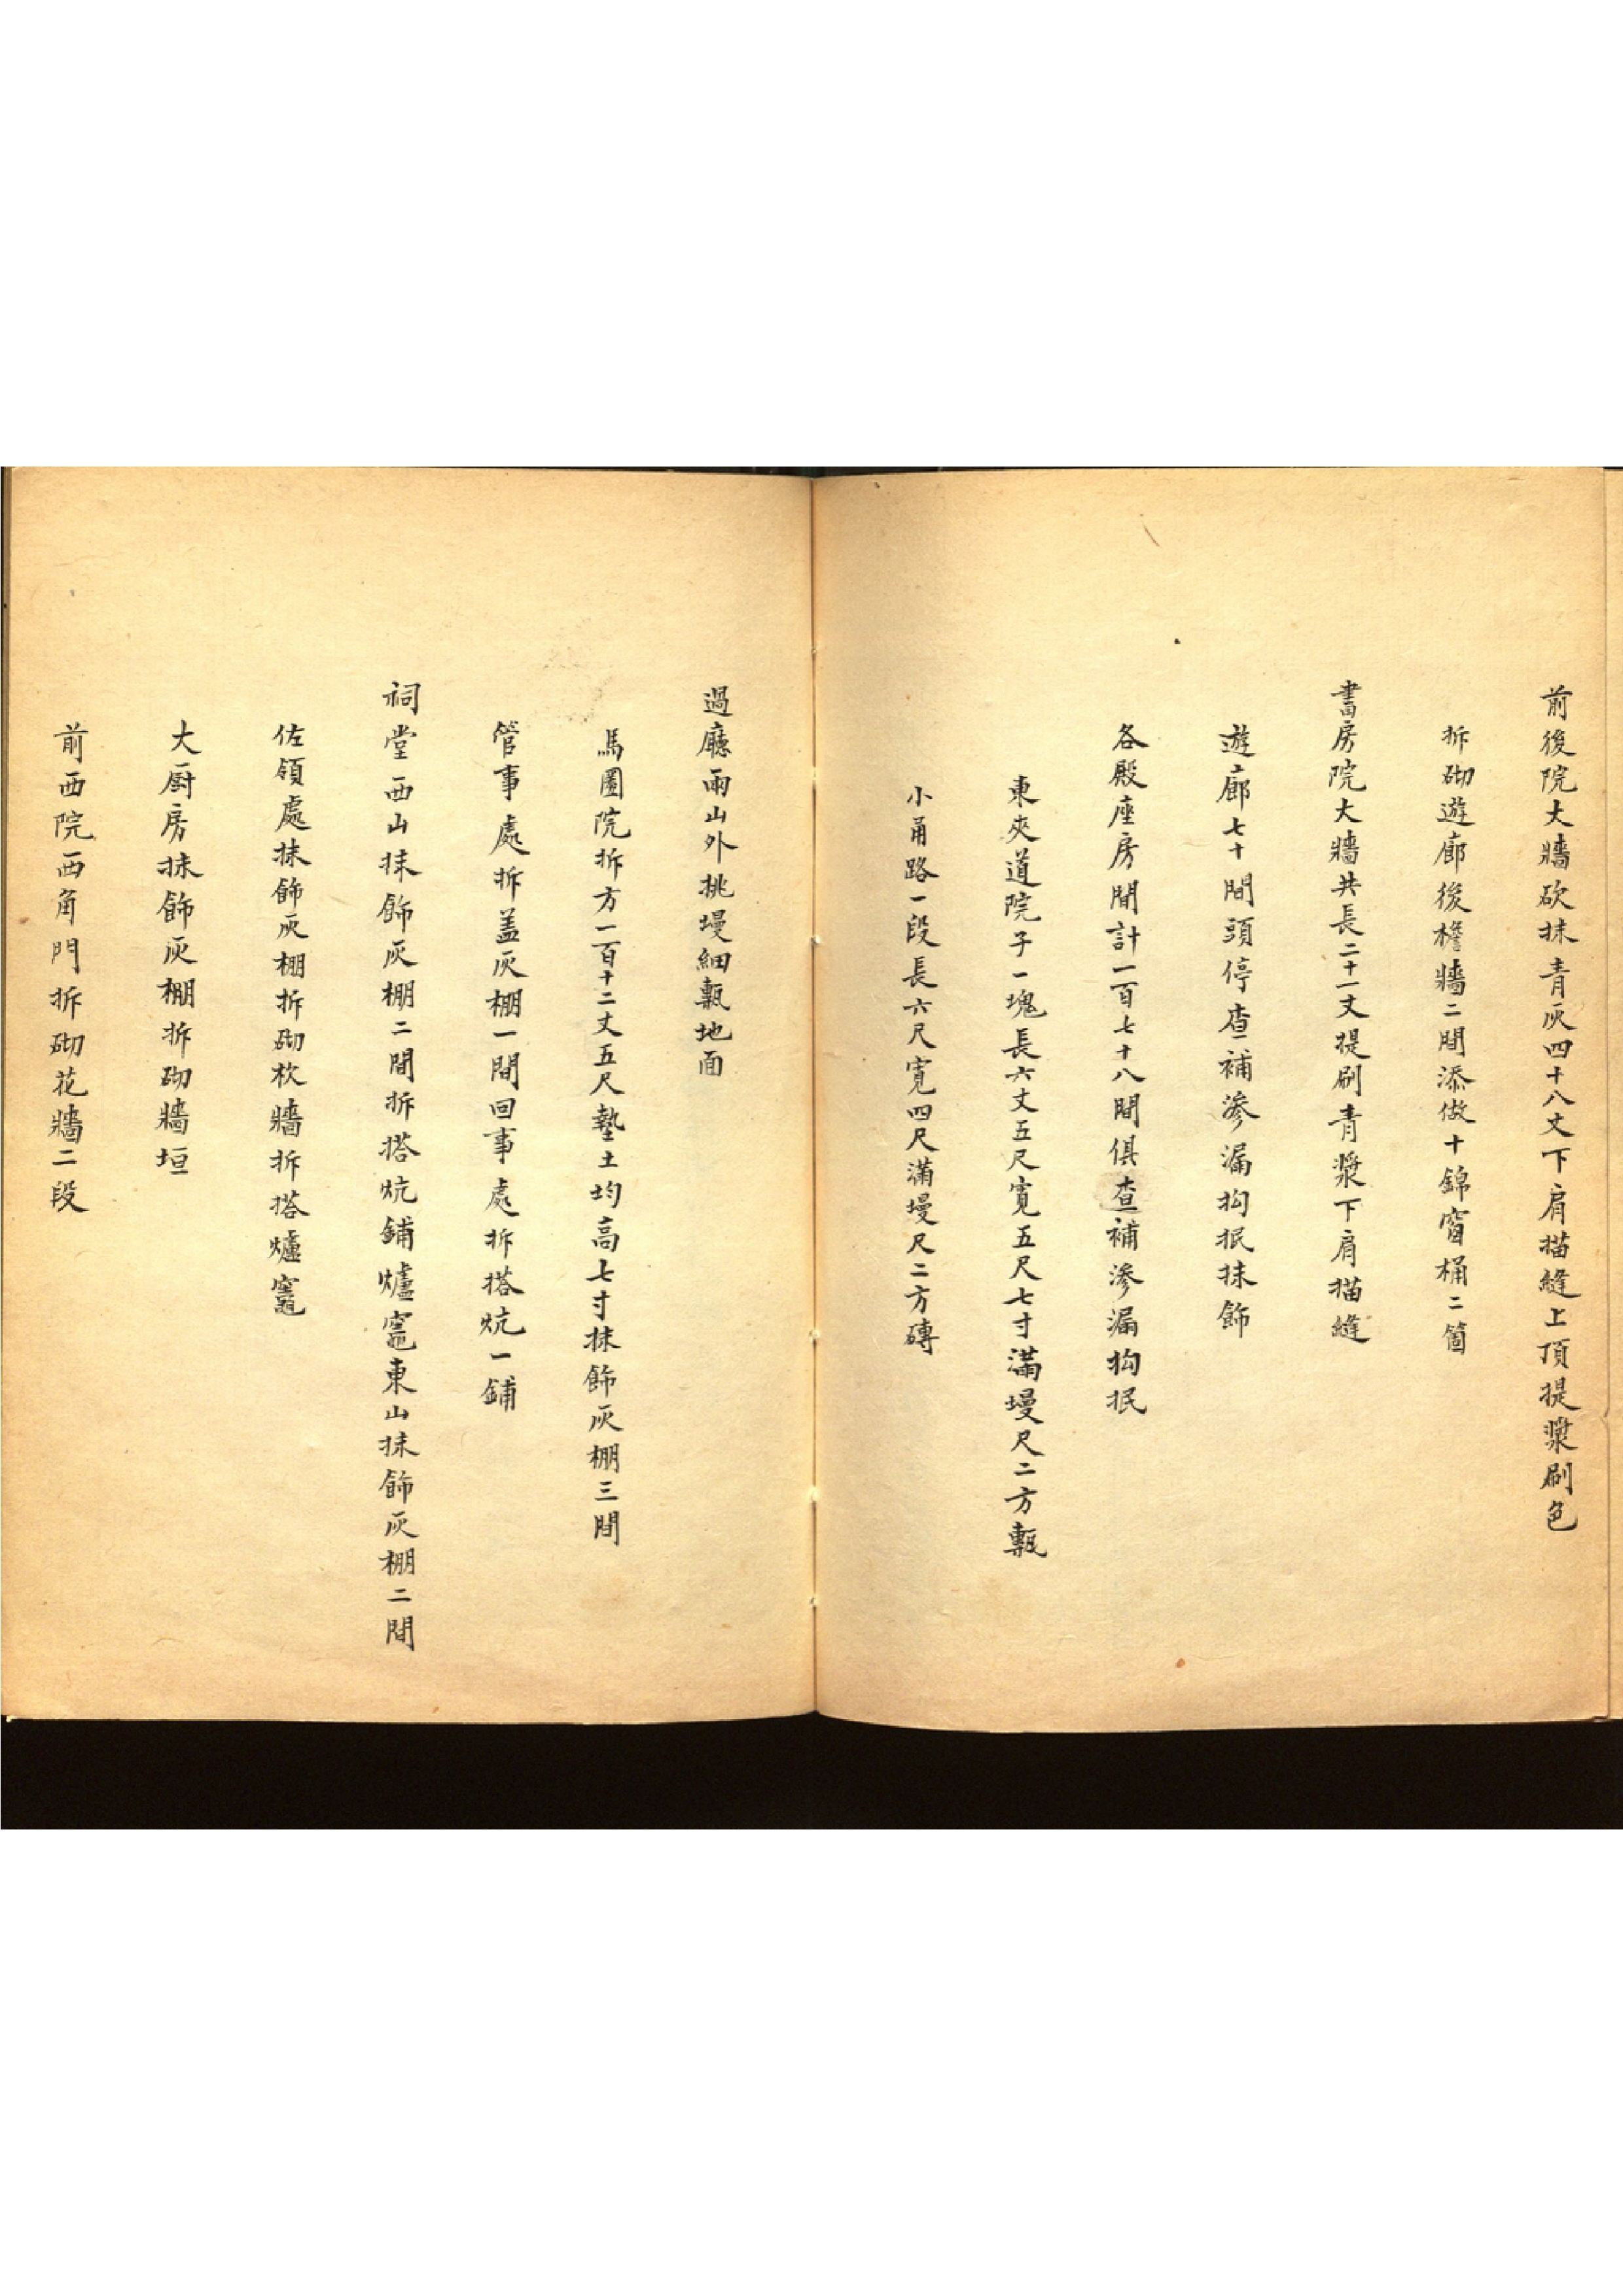 前後院大牆砍抹青灰四十八丈下肩描縫上頂提漿刷色
拆砌遊廊後檐牆二間添做十錦窗桶二箇
書房院大牆共長二十一丈提刷青漿下肩描縫
遊廊七十間頭停查補滲漏抅抿抹飾
各殿座房間計一百七十八間俱查補滲漏抅抿
東夾道院子一塊長六丈五尺寬五尺七寸滿墁尺二方甎
小甬路一段長六尺寬四尺滿墁尺二方磚
過廳兩山外挑墁細甎地面
馬圈院拆方一百十二丈五尺墊土均高七寸抹飾灰棚三間
管事處拆盖灰棚一間回事處拆搭炕一鋪
祠堂西山抹飾灰棚二間拆搭炕鋪爐竈東山抹飾灰棚二間
佐領處抹飾灰棚拆砌杴牆拆搭爐竈
大厨房抹飾灰棚拆砌牆垣
前西院西角門拆砌花牆二段